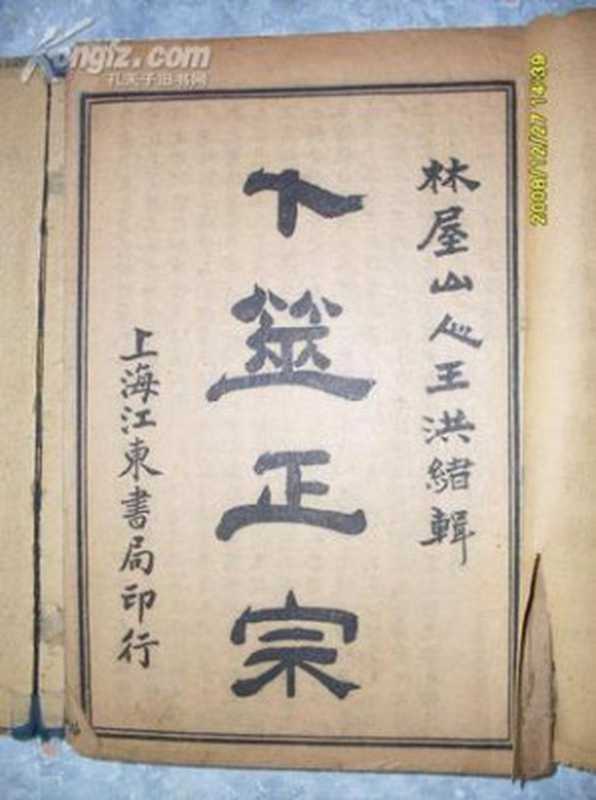 林屋山人王洪緒輯
卜筮正宗
上海江東書局印行
Kongfz.com
孔夫子旧书网
2008/12/27 14:39